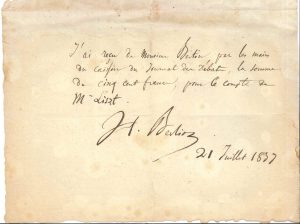 J'ai reçu de Monsieur Bertin, par les mains
du caissier du Journal des débats, la somme
de cinq cent francs, pour le compte de
Mr Liszt.
H. Berlioz
21 Juillet 1837